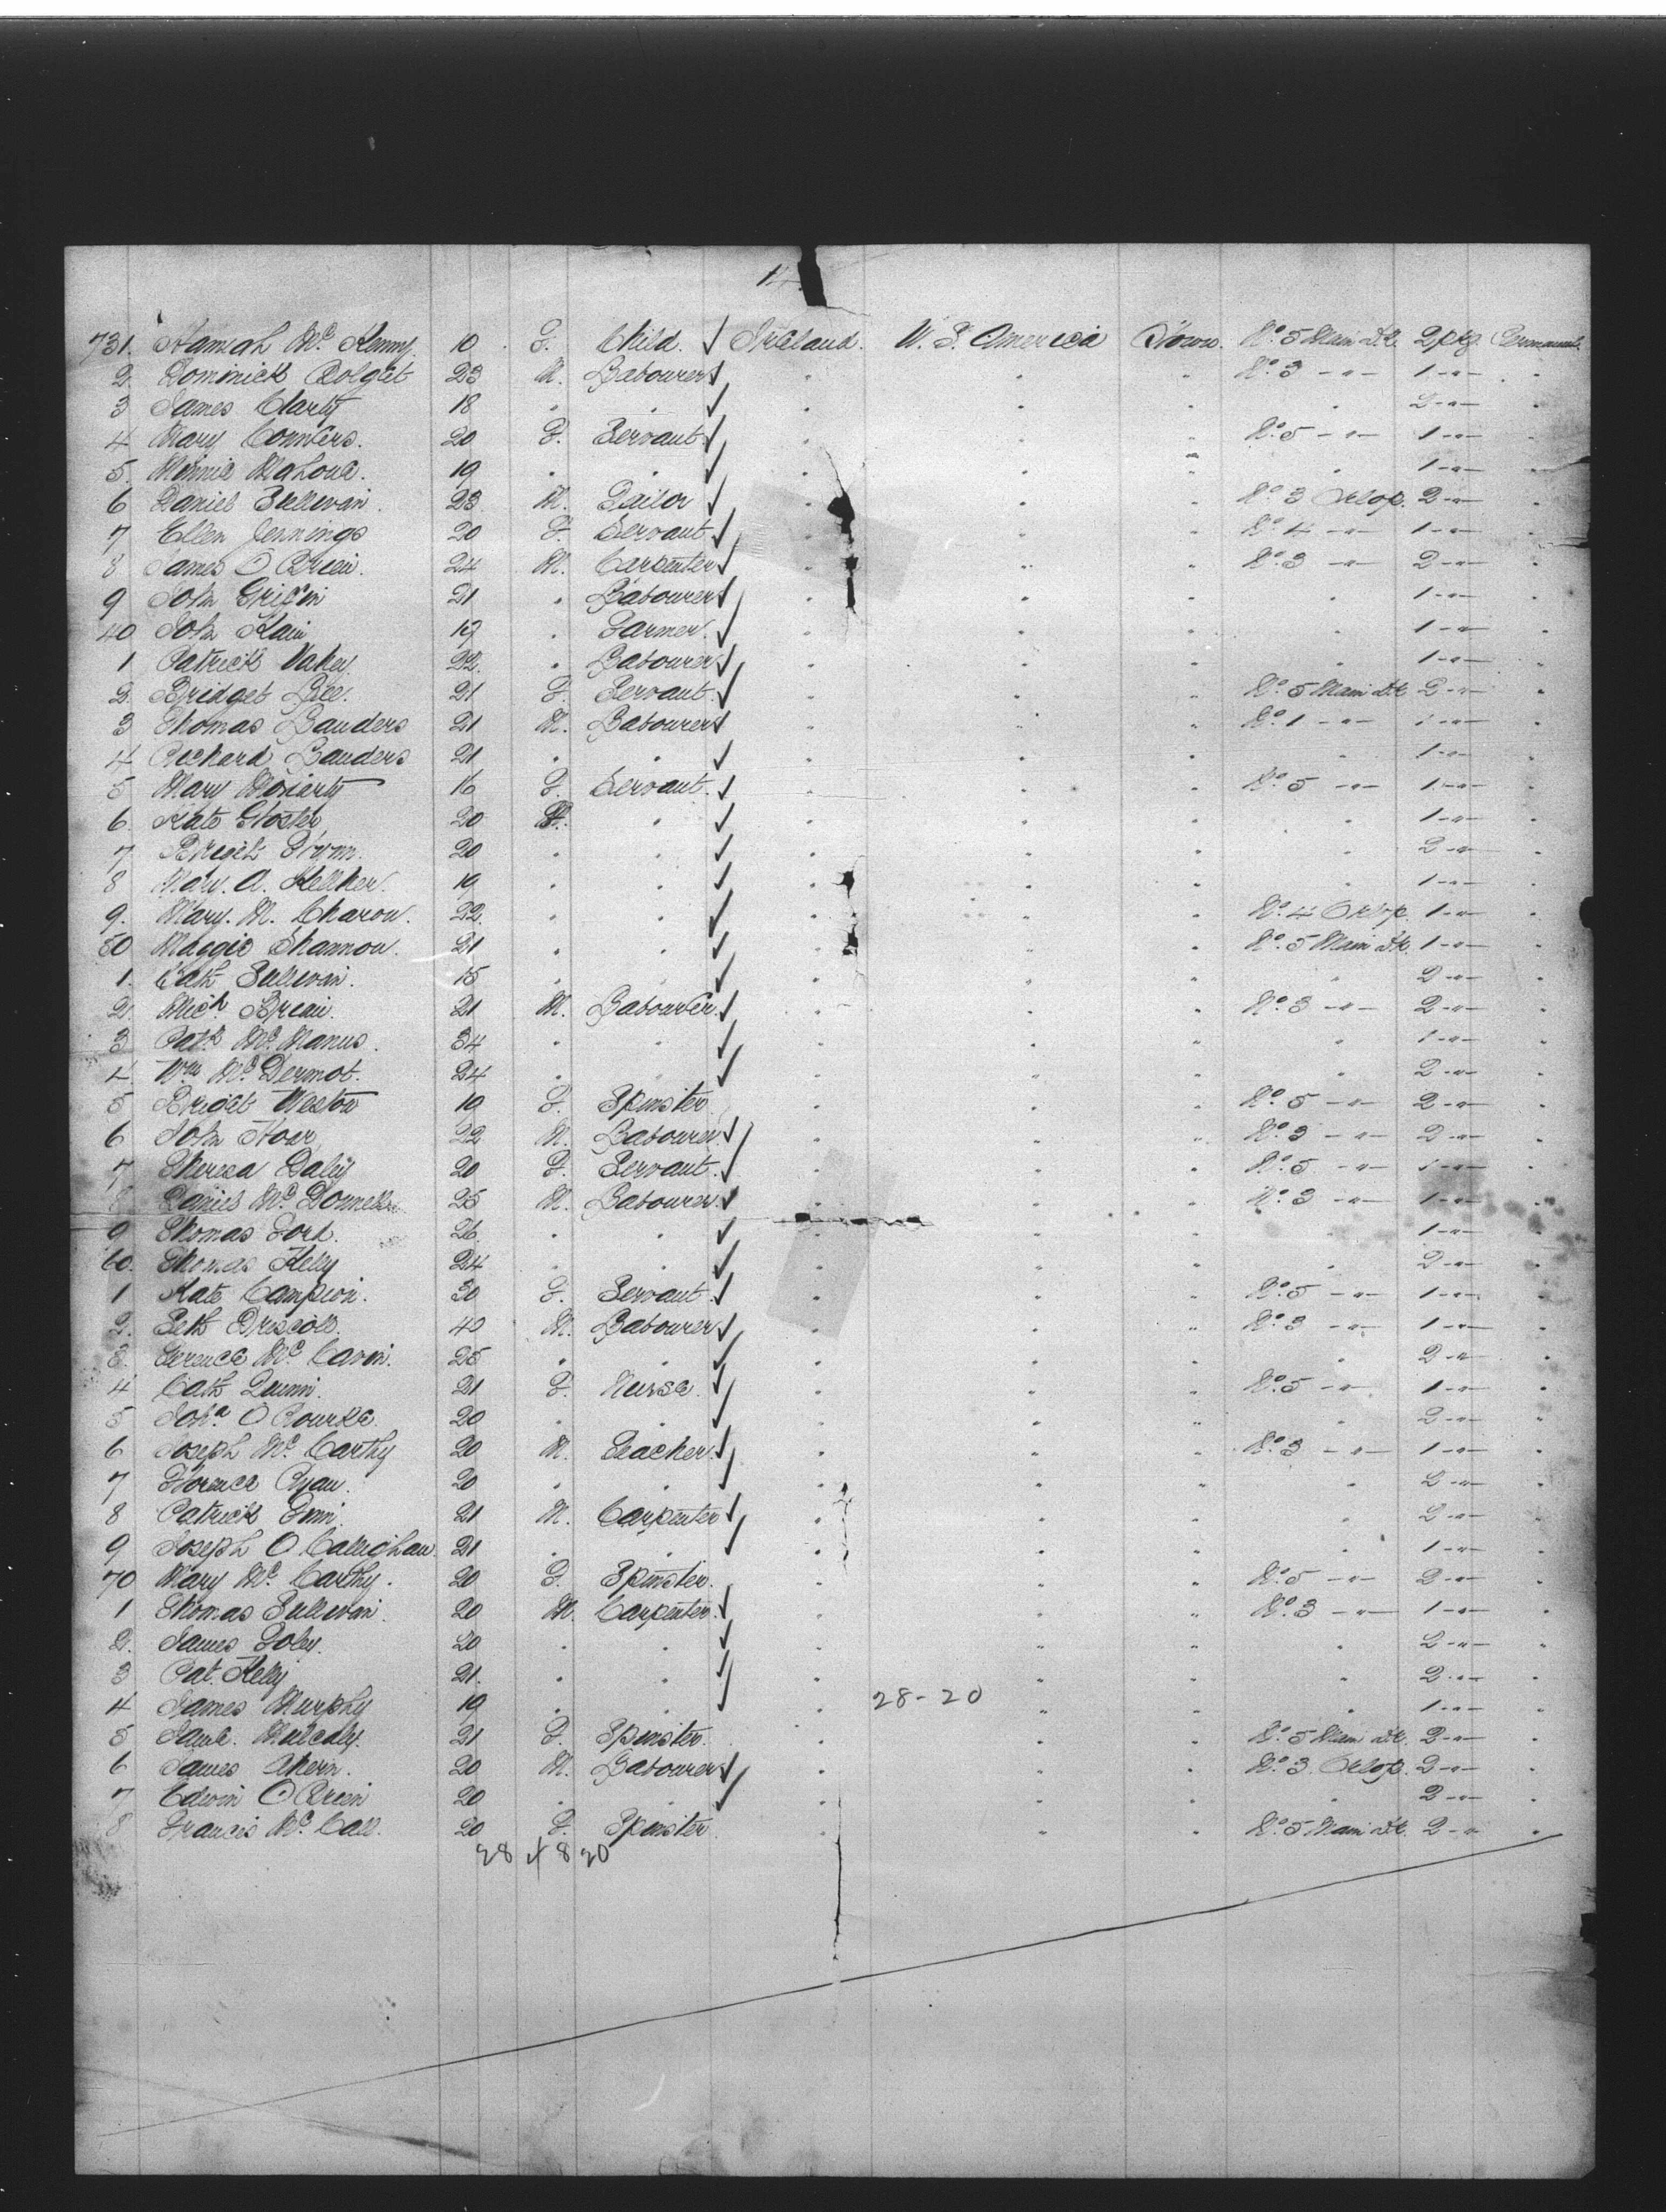 14
731. Hannah Mc Kenny. 10 F. Child. ✓ Ireland. U. S. America None. No. 5 Main Dk. 2 pkg. Permanent.
2 Dominick Colget 23 M. Labourer ✓ " " " No. 3 -"- 1 -"- "
3 James Clarty 18 " " ✓ " " " " 2 -"- "
4 Mary Connors. 20 F. Servant ✓ " " " No. 5 -"- 1 -"- "
5. Minnie Mahone. 19 " " ✓ " " " " 1 -"- "
6 Daniel Sullivan. 23 M. Tailor ✓ " " " No. 3 Orlop. 2 -"- "
7 Ellen Jennings 20 F. Servant ✓ " " " No. 4 -"- 1 -"- "
8 James O Brien. 24 M. Carpenter ✓ " " " No. 3 -"- 2 -"- "
9 John Griffin 21 " Labourer ✓ " " " " 1 -"- "
40 John Kain 19 " Farmer. ✓ " " " " 1 -"- "
1 Patrick Vahey 22. " Labourer ✓ " " " " 1 -"- "
2. Bridget Lee. 21 F. Servant. ✓ " " " No. 5 Main Dk 2 -"- "
3 Thomas Landers 21 M. Labourer ✓ " " " No. 1 -"- 1 -"- "
4 Richard Landers 21 " " ✓ " " " " 1 -"- "
5 Mary Moriarty 16 F. Servant. ✓ " " " No. 5 -"- 1 -"- "
6. Kate Gloster 20 " ✓ " " " " 1 -"- "
7 Bridget 20 " " ✓ " " " " 2 -"- "
8 Mary. A. Kelliher. 19 " " ✓ " " " " 1 -"- "
9. Mary. M. Charon. 22. " " ✓ " " " No. 4 Orlop. 1 -"- "
50 Maggie Shannon. 21 " " ✓ " " " No. 5 Main Dk. 1 -"- "
1. Cath Sullivan. 15 " " ✓ " " " " 2 -"- "
2. Mich Brien. 21 M. Labourer. ✓ " " " No. 3 -"- 2 -"- "
3 Patk Mc Manus. 34 " " ✓ " " " " 1 -"- "
4. Wm Mc Dermot. 24 " " ✓ " " " " 2 -"- "
5 Bridget Weston 19 F. Spinster " " " No. 5 -"- 2 -"- "
6 John Hoar 22 M. Labourer. ✓ " " " No. 3 -"- 2 -"- "
7 Theresa Daly 20 F. Servant. ✓ " " " No. 5 -"- 1 -"- "
8 Daniel Mc Donnell 25 M. Labourer. ✓ " " " No. 3 -"- 1 -"- "
9 Thomas Ford. 26. " " ✓ " " " " 1 -"- "
60. Thomas Kelly 24 " " ✓ " " " " 2 -"- "
1 Kate Campion. 30 F. Servant. ✓ " " " No. 5 -"- 1 -"- "
2. Driscoll. 40 M. Labourer ✓ " " " No. 3 -"- 1 -"- "
3. Terence Mc Cavin. 25 " " ✓ " " " " 2 -"- "
4 Cath Quinn. 21 F. Nurse. ✓ " " " No. 5 -"- 1 -"- "
5 Joha O Rourke. 20 " " ✓ " " " " 2 -"- "
6 Joseph Mc Carthy 20 M. Teacher. ✓ " " " No. 3 -"- 1 -"- "
7 Florence Ryan. 20 " " ✓ " " " " 2 -"- "
8 Patrick 21 M. Carpenter ✓ " " " " 2 -"- "
9 Joseph O Callighan. 21 " " ✓ " " " " 1 -"- "
70 Mary Mc Carthy. 20 F. Spinster. " " " No. 5 -"- 2 -"- "
1 Thomas Sullivan. 20 M. Carpenter. ✓ " " " No. 3 -"- 1 -"- "
2. James Foley. 20 " " ✓ " " " " 2 -"- "
3 Pat. Kelly 21. " " ✓ " " " " 2 -"- "
4 James Murphy 19 " " ✓ " 28-20 " " " 1 -"- "
5 Mulcahy. 21 F. Spinster. " " " No. 5 Main Dk. 2 -"- "
6 James Ahern. 20 M. Labourer ✓ " " " No. 3. Orlop. 2 -"- "
7 Edwin O Brien 20 " " ✓ " " " " 2 -"- "
8 Francis Mc Call. 20 F. Spinster. " " " No. 5 Main Dk. 2 -"- "
28 + 8 20